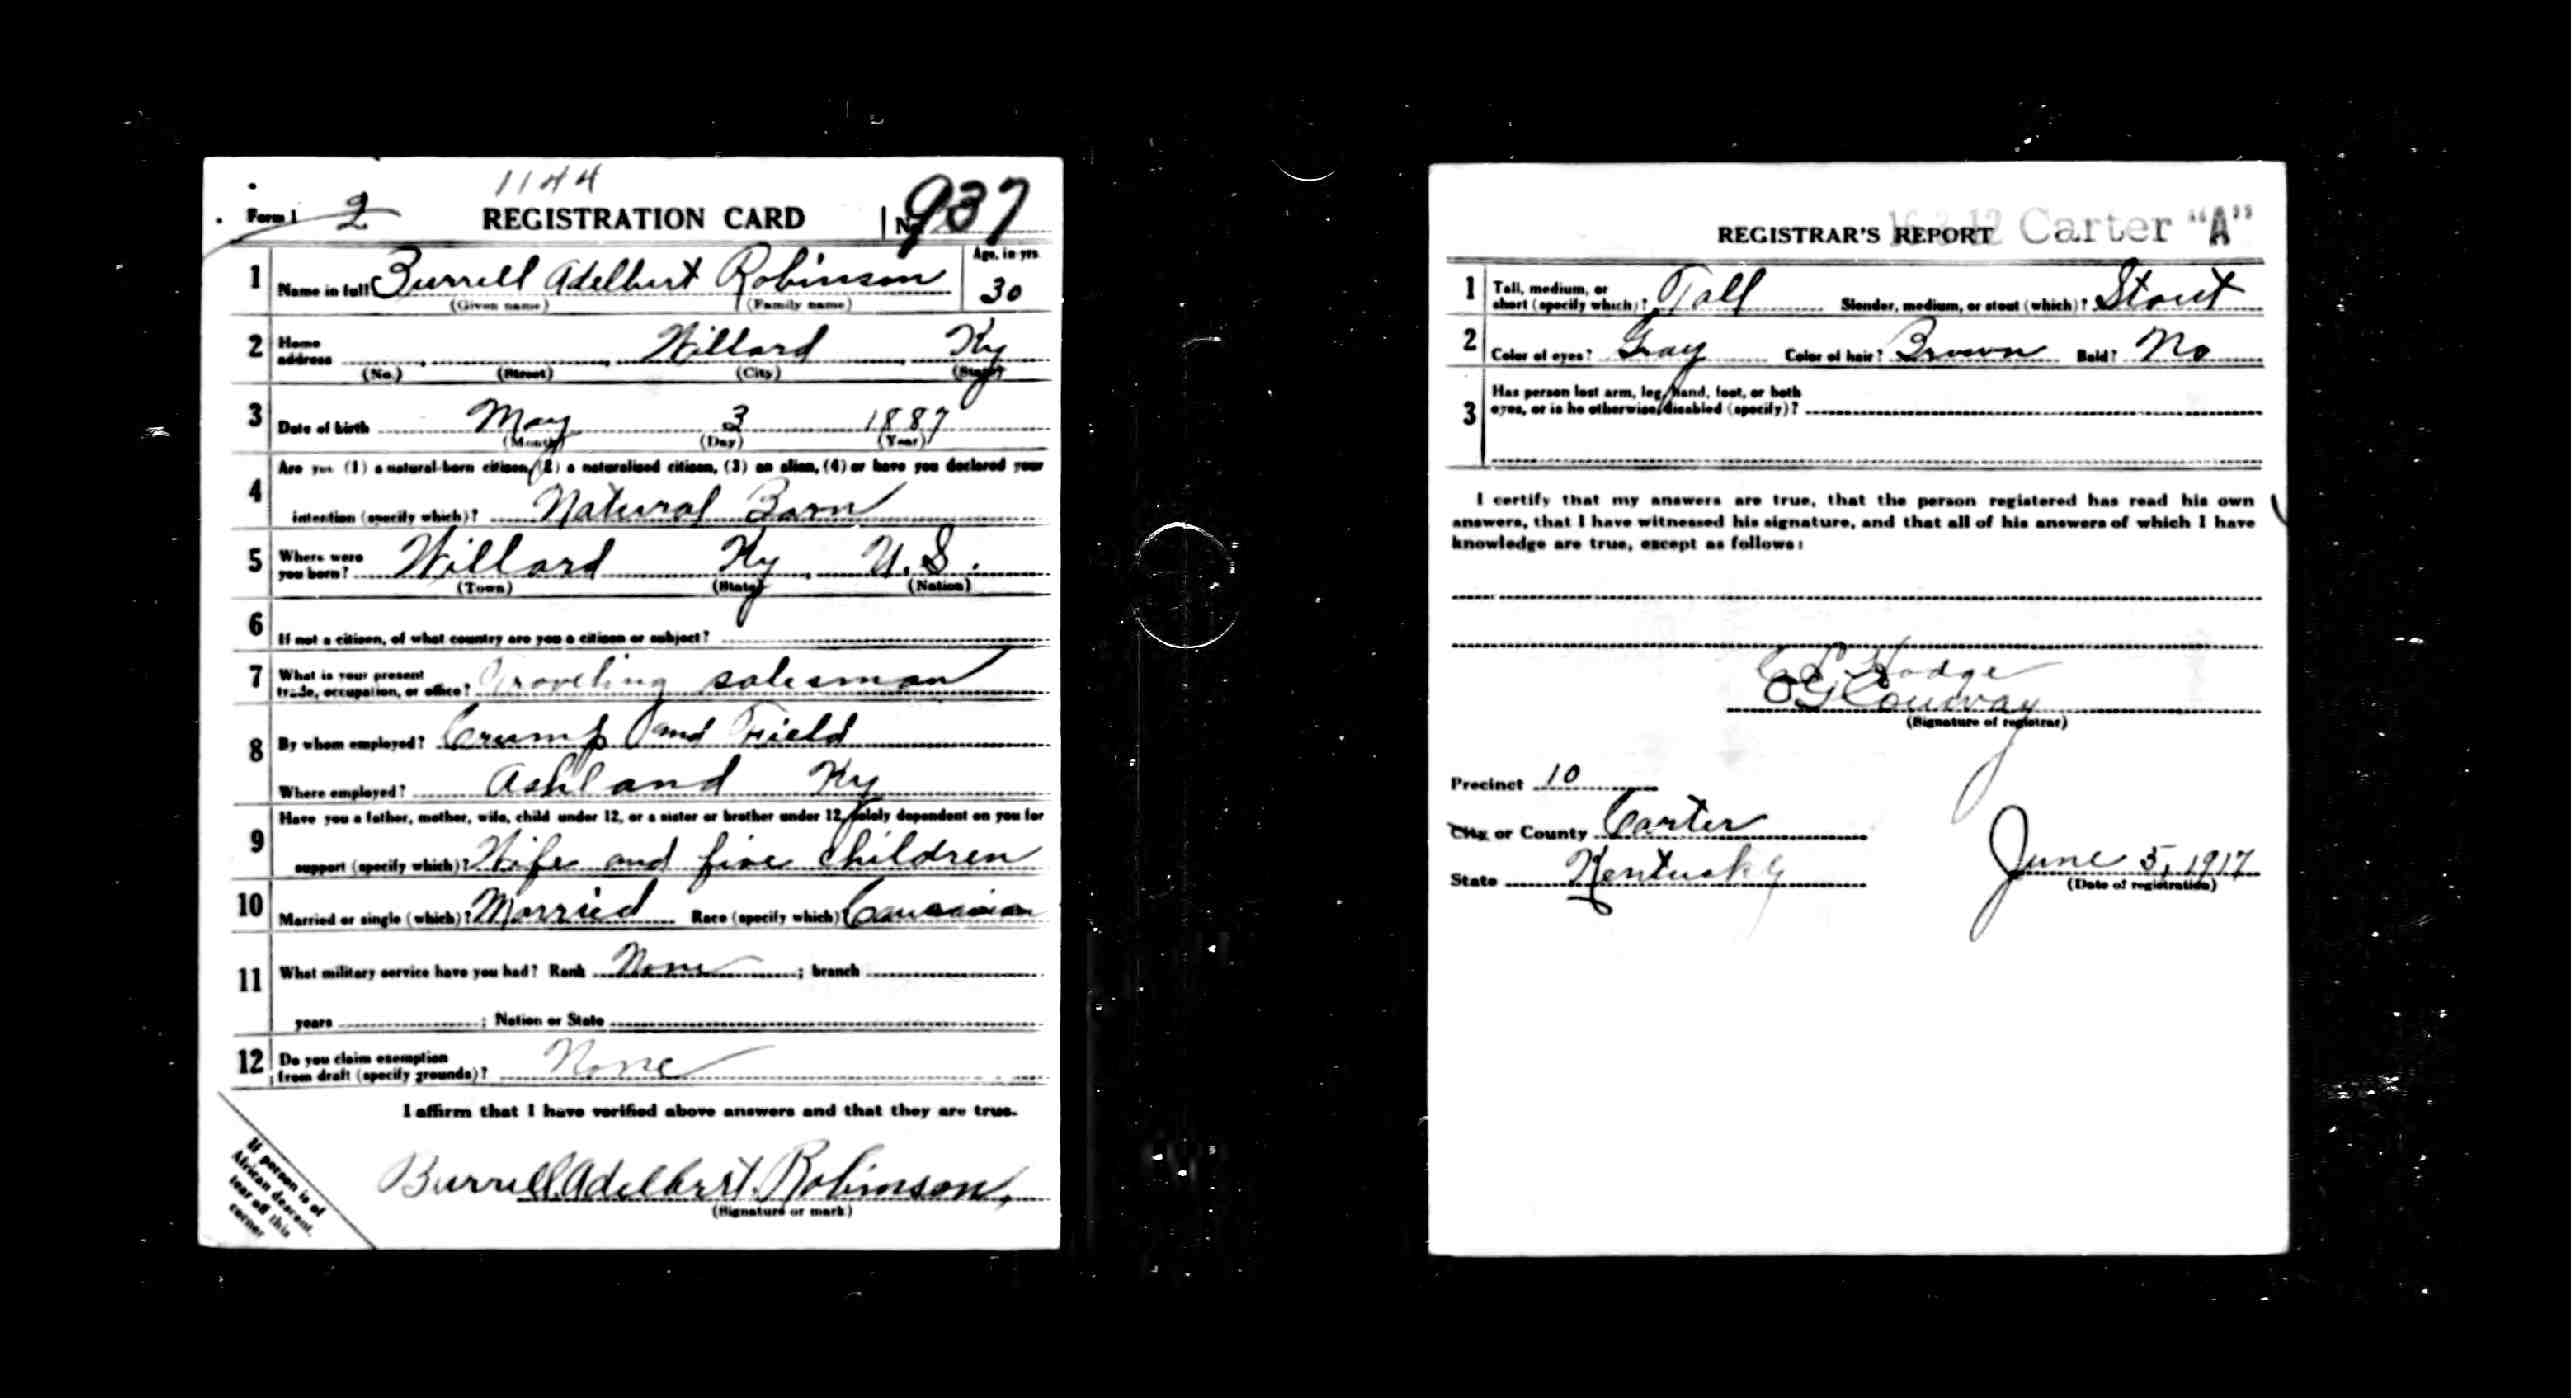 1144
Form 1 2 REGISTRATION CARD No. 937
1 Name in full Burrell Adelbert Robinson Age, in yrs. 30
(Given name) (Family name)
2 Home address Willard Ky
(No.) (Street) (City) (State)
3 Date of birth May 3 1887
(Month) (Day) (Year)
4 Are you (1) a natural-born citizen, (2) a naturalized citizen, (3) an alien, (4) or have you declared your
intention (specify which)? Natural Born
5 Where were you born? Willard Ky U.S.
(Town) (State) (Nation)
6 If not a citizen, of what country are you a citizen or subject?
7 What is your present trade, occupation, or office? Traveling salesman
8 By whom employed? Crump and Field
Where employed? Ashland Ky
9 Have you a father, mother, wife, child under 12, or a sister or brother under 12, solely dependent on you for
support (specify which)? Wife and five children
10 Married or single (which)? Married Race (specify which) Caucasian
11 What military service have you had? Rank None ; branch
years ; Nation or State
12 Do you claim exemption from draft (specify grounds)? None
I affirm that I have verified above answers and that they are true.
Burrell Adelbert Robinson.
(Signature or mark)
If person is of
African descent,
tear off this
corner
REGISTRAR'S REPORT Carter "A"
1 Tall, medium, or short (specify which)? Tall Slender, medium, or stout (which)? Stout
2 Color of eyes? Gray Color of hair? Brown Bald? No
3 Has person lost arm, leg, hand, foot, or both
eyes, or is he otherwise disabled (specify)?
I certify that my answers are true, that the person registered has read his own
answers, that I have witnessed his signature, and that all of his answers of which I have
knowledge are true, except as follows:
Hodge
Conway
(Signature of registrar)
Precinct 10
City or County Carter
State Kentucky June 5, 1917
(Date of registration)